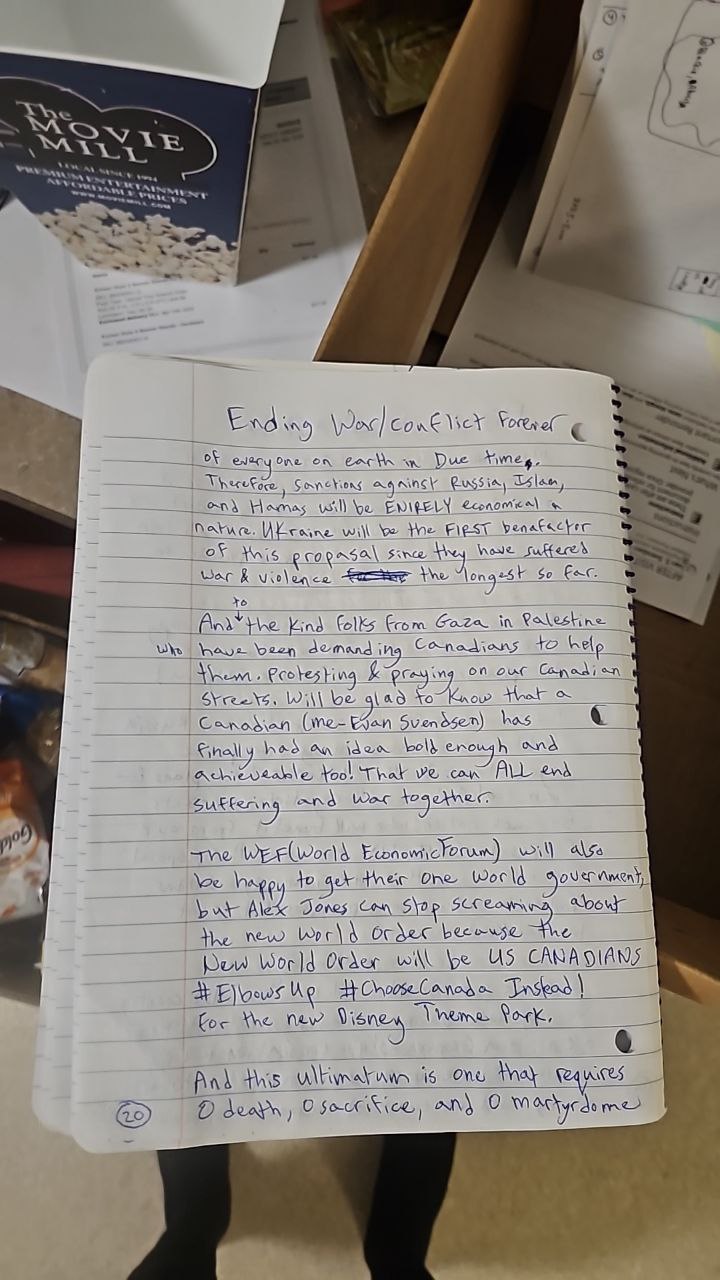 The
MOVIE
MILL
LOCAL SINCE 1994
PREMIUM ENTERTAINMENT
AFFORDABLE PRICES
WWW.MOVIEMILL.COM
Gold
Ending War/conflict Forever
of everyone on earth in Due time.
Therefore, sanctions against Russia, Islam,
and Hamas will be ENIRELY economical in
nature. UKraine will be the FIRST benafactor
of this propasal since they have suffered
war & violence the longest so far.
to
And the kind folks from Gaza in Palestine
who have been demanding Canadians to help
them. Protesting & praying on our Canadian
streets. Will be glad to know that a
Canadian (me-Evan Svendsen) has
finally had an idea bold enough and
achieveable too! That we can ALL end
suffering and war together.
The WEF(World Economic Forum) will also
be happy to get their one world government,
but Alex Jones can stop screaming about
the new world order because the
New World Order will be US CANADIANS
#ElbowsUp #ChooseCanada Instead!
For the new Disney Theme Park.
And this ultimatum is one that requires
20 0 death, 0 sacrifice, and 0 martyrdome